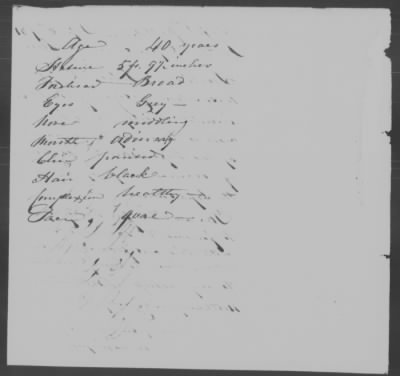 Age 40 years
Stature 5 ft. 9½ inches
Forehead Broad
Eyes Grey —
nose middling
Mouth ordinary
Chin pointed
Hair black
Complexion healthy —
Face,